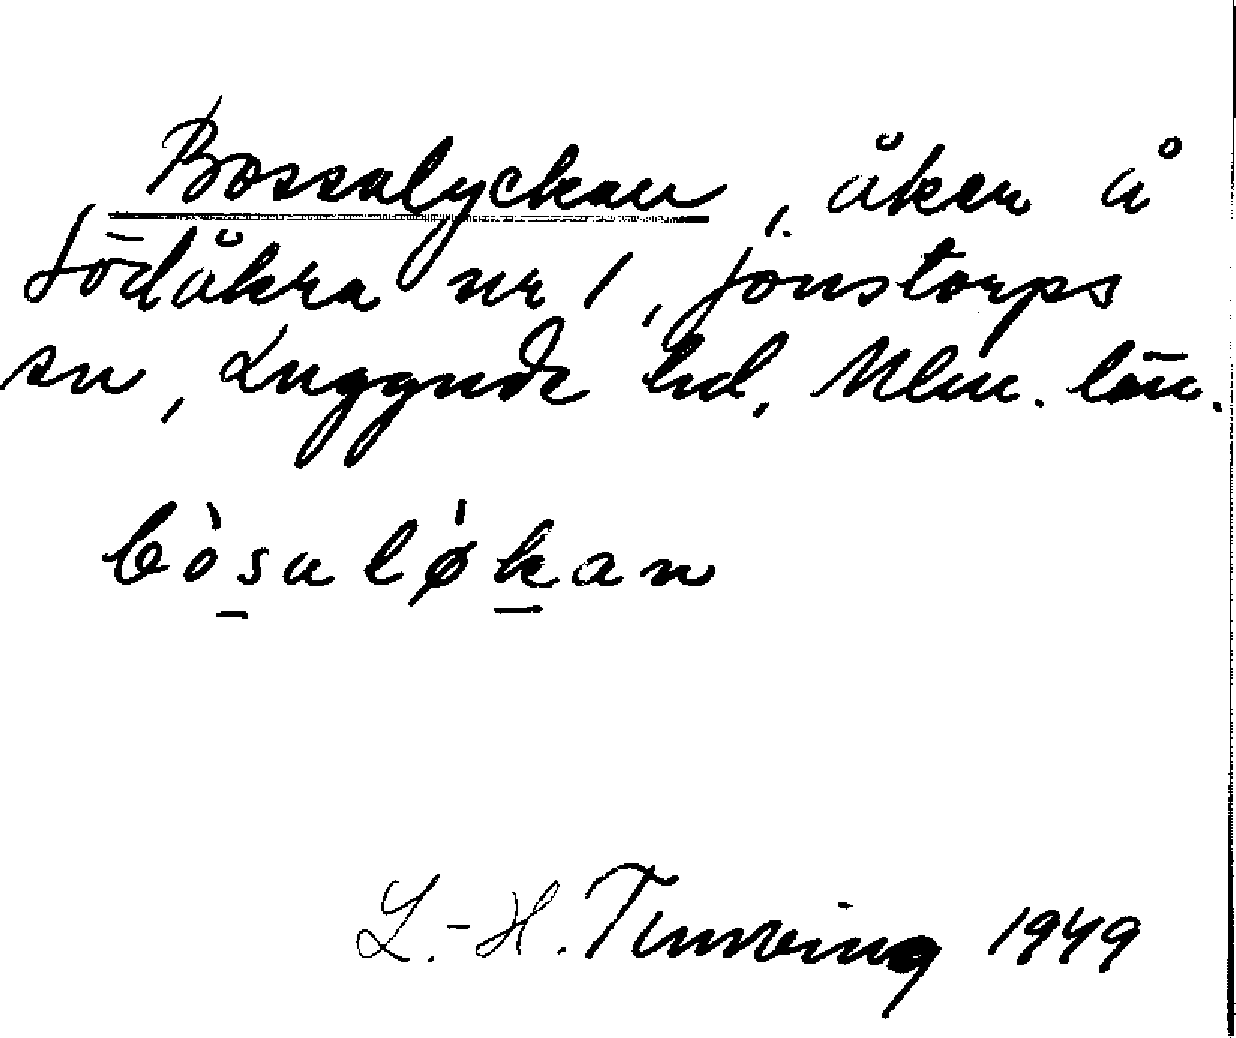 Bossalyckan, åker å
Södåkra nr 1, Jonstorps
sn, Luggude hd, Mlm. län.
bòsalø̍kan
L.-H. 1949